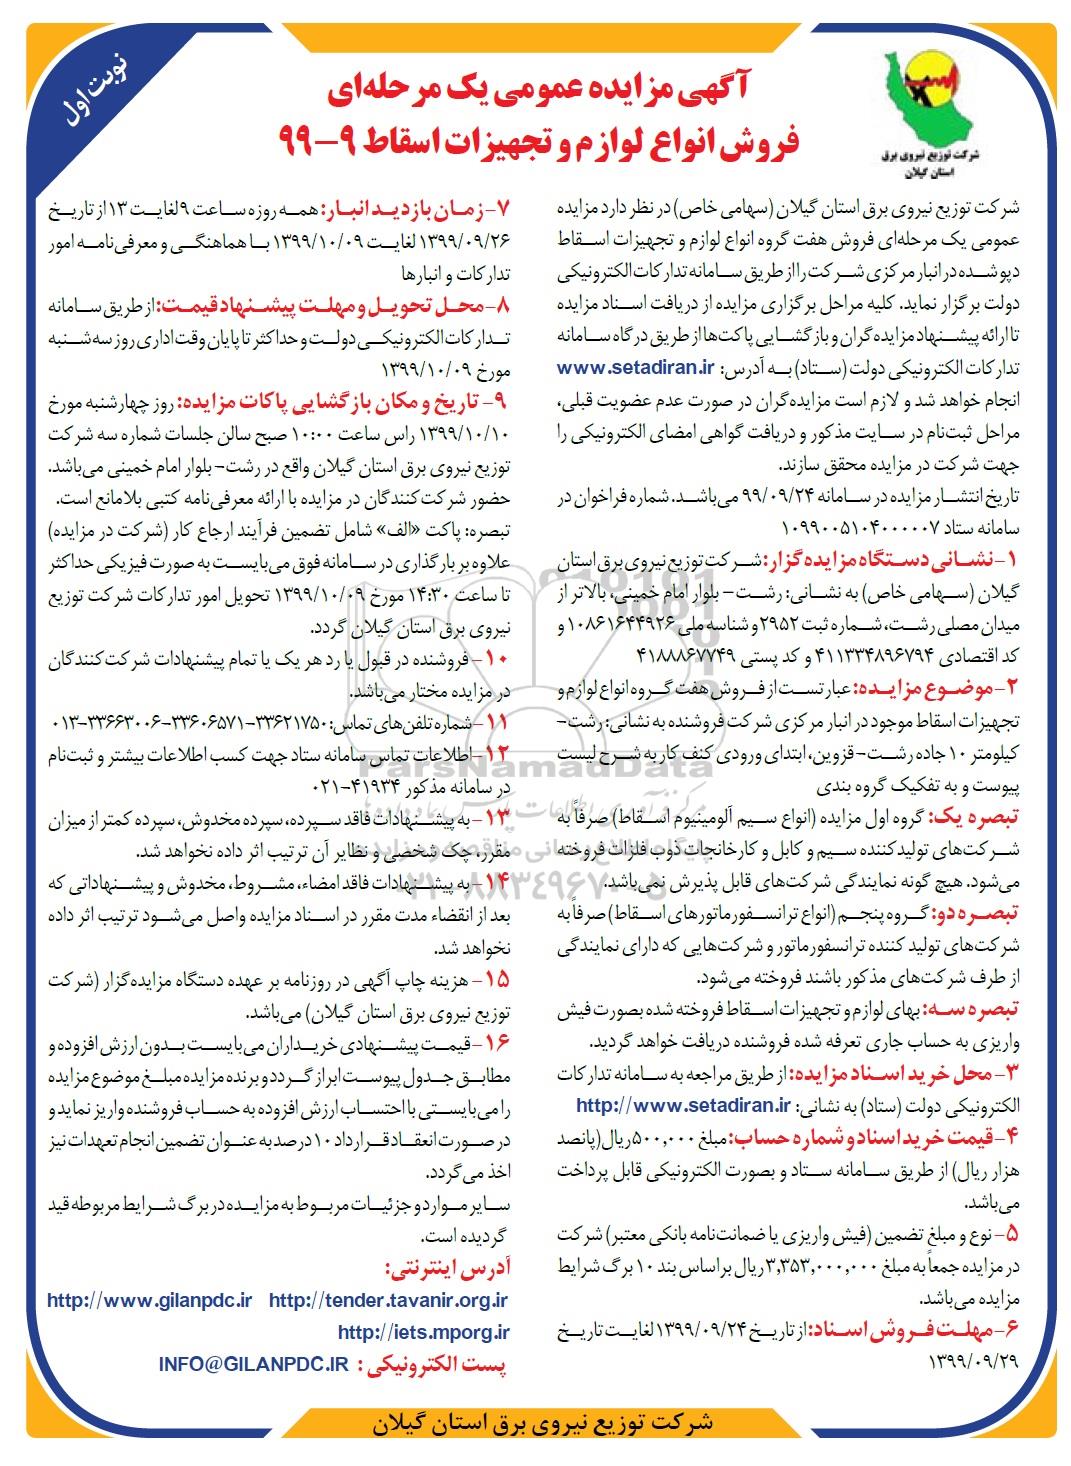 نوبت اول
آگهی مزایده عمومی یک مرحله‌ای
فروش انواع لوازم و تجهیزات اسقاط ۹-۹۹
شرکت توزیع نیروی برق
استان گیلان
شرکت توزیع نیروی برق استان گیلان (سهامی خاص) در نظر دارد مزایده
عمومی یک مرحله‌ای فروش هفت گروه انواع لوازم و تجهیزات اسقاط
دپو شده در انبار مرکزی شرکت را از طریق سامانه تدارکات الکترونیکی
دولت برگزار نماید. کلیه مراحل برگزاری مزایده از دریافت اسناد مزایده
تا ارائه پیشنهاد مزایده‌گران و بازگشایی پاکت‌ها از طریق درگاه سامانه
تدارکات الکترونیکی دولت (ستاد) به آدرس: www.setadiran.ir
انجام خواهد شد و لازم است مزایده‌گران در صورت عدم عضویت قبلی،
مراحل ثبت‌نام در سایت مذکور و دریافت گواهی امضای الکترونیکی را
جهت شرکت در مزایده محقق سازند.
تاریخ انتشار مزایده در سامانه ۹۹/۰۹/۲۴ می‌باشد. شماره فراخوان در
سامانه ستاد ۱۰۹۹۰۰۵۱۰۴۰۰۰۰۰۷
۱- نشانی دستگاه مزایده گزار: شرکت توزیع نیروی برق استان
گیلان (سهامی خاص) به نشانی: رشت - بلوار امام خمینی، بالاتر از
میدان مصلی رشت، شماره ثبت ۲۹۵۲ و شناسه ملی ۱۰۸۶۱۶۴۴۹۲۶ و
کد اقتصادی ۴۱۱۳۳۴۸۹۶۷۹۴ و کد پستی ۴۱۸۸۸۶۷۷۴۹
۲- موضوع مزایده: عبارتست از فروش هفت گروه انواع لوازم و
تجهیزات اسقاط موجود در انبار مرکزی شرکت فروشنده به نشانی: رشت -
کیلومتر ۱۰ جاده رشت - قزوین، ابتدای ورودی کنف کار به شرح لیست
پیوست و به تفکیک گروه بندی
تبصره یک: گروه اول مزایده (انواع سیم آلومینیوم اسقاط) صرفاً به
شرکت‌های تولیدکننده سیم و کابل و کارخانجات ذوب فلزات فروخته
می‌شود. هیچ گونه نمایندگی شرکت‌های قابل پذیرش نمی‌باشد.
تبصره دو: گروه پنجم (انواع ترانسفورماتورهای اسقاط) صرفاً به
شرکت‌های تولید کننده ترانسفورماتور و شرکت‌هایی که دارای نمایندگی
از طرف شرکت‌های مذکور باشند فروخته می‌شود.
تبصره سه: بهای لوازم و تجهیزات اسقاط فروخته شده بصورت فیش
واریزی به حساب جاری تعرفه شده فروشنده دریافت خواهد گردید.
۳- محل خرید اسناد مزایده: از طریق مراجعه به سامانه تدارکات
الکترونیکی دولت (ستاد) به نشانی: http://www.setadiran.ir
۴- قیمت خرید اسناد و شماره حساب: مبلغ ۵۰۰,۰۰۰ ریال (پانصد
هزار ریال) از طریق سامانه ستاد و بصورت الکترونیکی قابل پرداخت
می‌باشد.
۵- نوع و مبلغ تضمین (فیش واریزی یا ضمانت‌نامه بانکی معتبر) شرکت
در مزایده جمعاً به مبلغ ۳,۳۵۳,۰۰۰,۰۰۰ ریال براساس بند ۱۰ برگ شرایط
مزایده می‌باشد.
۶- مهلت فروش اسناد: از تاریخ ۱۳۹۹/۰۹/۲۴ لغایت تاریخ
۱۳۹۹/۰۹/۲۹
۷- زمان بازدید انبار: همه روزه ساعت ۹ لغایت ۱۳ از تاریخ
۱۳۹۹/۰۹/۲۶ لغایت ۱۳۹۹/۱۰/۰۹ با هماهنگی و معرفی‌نامه امور
تدارکات و انبارها
۸- محل تحویل و مهلت پیشنهاد قیمت: از طریق سامانه
تدارکات الکترونیکی دولت و حداکثر تا پایان وقت اداری روز سه‌شنبه
مورخ ۱۳۹۹/۱۰/۰۹
۹- تاریخ و مکان بازگشایی پاکات مزایده: روز چهارشنبه مورخ
۱۳۹۹/۱۰/۱۰ راس ساعت ۱۰:۰۰ صبح سالن جلسات شماره سه شرکت
توزیع نیروی برق استان گیلان واقع در رشت- بلوار امام خمینی می‌باشد.
حضور شرکت‌کنندگان در مزایده با ارائه معرفی‌نامه کتبی بلامانع است.
تبصره: پاکت «الف» شامل تضمین فرآیند ارجاع کار (شرکت در مزایده)
علاوه بر بارگذاری در سامانه فوق می‌بایست به صورت فیزیکی حداکثر
تا ساعت ۱۴:۳۰ مورخ ۱۳۹۹/۱۰/۰۹ تحویل امور تدارکات شرکت توزیع
نیروی برق استان گیلان گردد.
۱۰- فروشنده در قبول یا رد هر یک یا تمام پیشنهادات شرکت‌کنندگان
در مزایده مختار می‌باشد.
۱۱- شماره تلفن‌های تماس: ۳۳۶۲۱۷۵۰-۳۳۶۰۶۵۷۱-۳۳۶۶۳۰۰۶-۰۱۳
۱۲- اطلاعات تماس سامانه ستاد جهت کسب اطلاعات بیشتر و ثبت‌نام
در سامانه مذکور ۴۱۹۳۴-۰۲۱
۱۳- به پیشنهادات فاقد سپرده، سپرده مخدوش، سپرده کمتر از میزان
مقرر، چک شخصی و نظایر آن ترتیب اثر داده نخواهد شد.
۱۴- به پیشنهادات فاقد امضاء، مشروط، مخدوش و پیشنهاداتی که
بعد از انقضاء مدت مقرر در اسناد مزایده واصل می‌شود ترتیب اثر داده
نخواهد شد.
۱۵- هزینه چاپ آگهی در روزنامه بر عهده دستگاه مزایده‌گزار (شرکت
توزیع نیروی برق استان گیلان) می‌باشد.
۱۶- قیمت پیشنهادی خریداران می‌بایست بدون ارزش افزوده و
مطابق جدول پیوست ابراز گردد و برنده مزایده مبلغ موضوع مزایده
را می‌بایستی با احتساب ارزش افزوده به حساب فروشنده واریز نماید و
در صورت انعقاد قرارداد ۱۰ درصد به عنوان تضمین انجام تعهدات نیز
اخذ می‌گردد.
سایر موارد و جزئیات مربوط به مزایده در برگ شرایط مربوطه قید
گردیده است.
آدرس اینترنتی:
http://www.gilanpdc.ir http://tender.tavanir.org.ir
http://iets.mporg.ir
پست الکترونیکی : INFO@GILANPDC.IR
شرکت توزیع نیروی برق استان گیلان
ParsNamadData